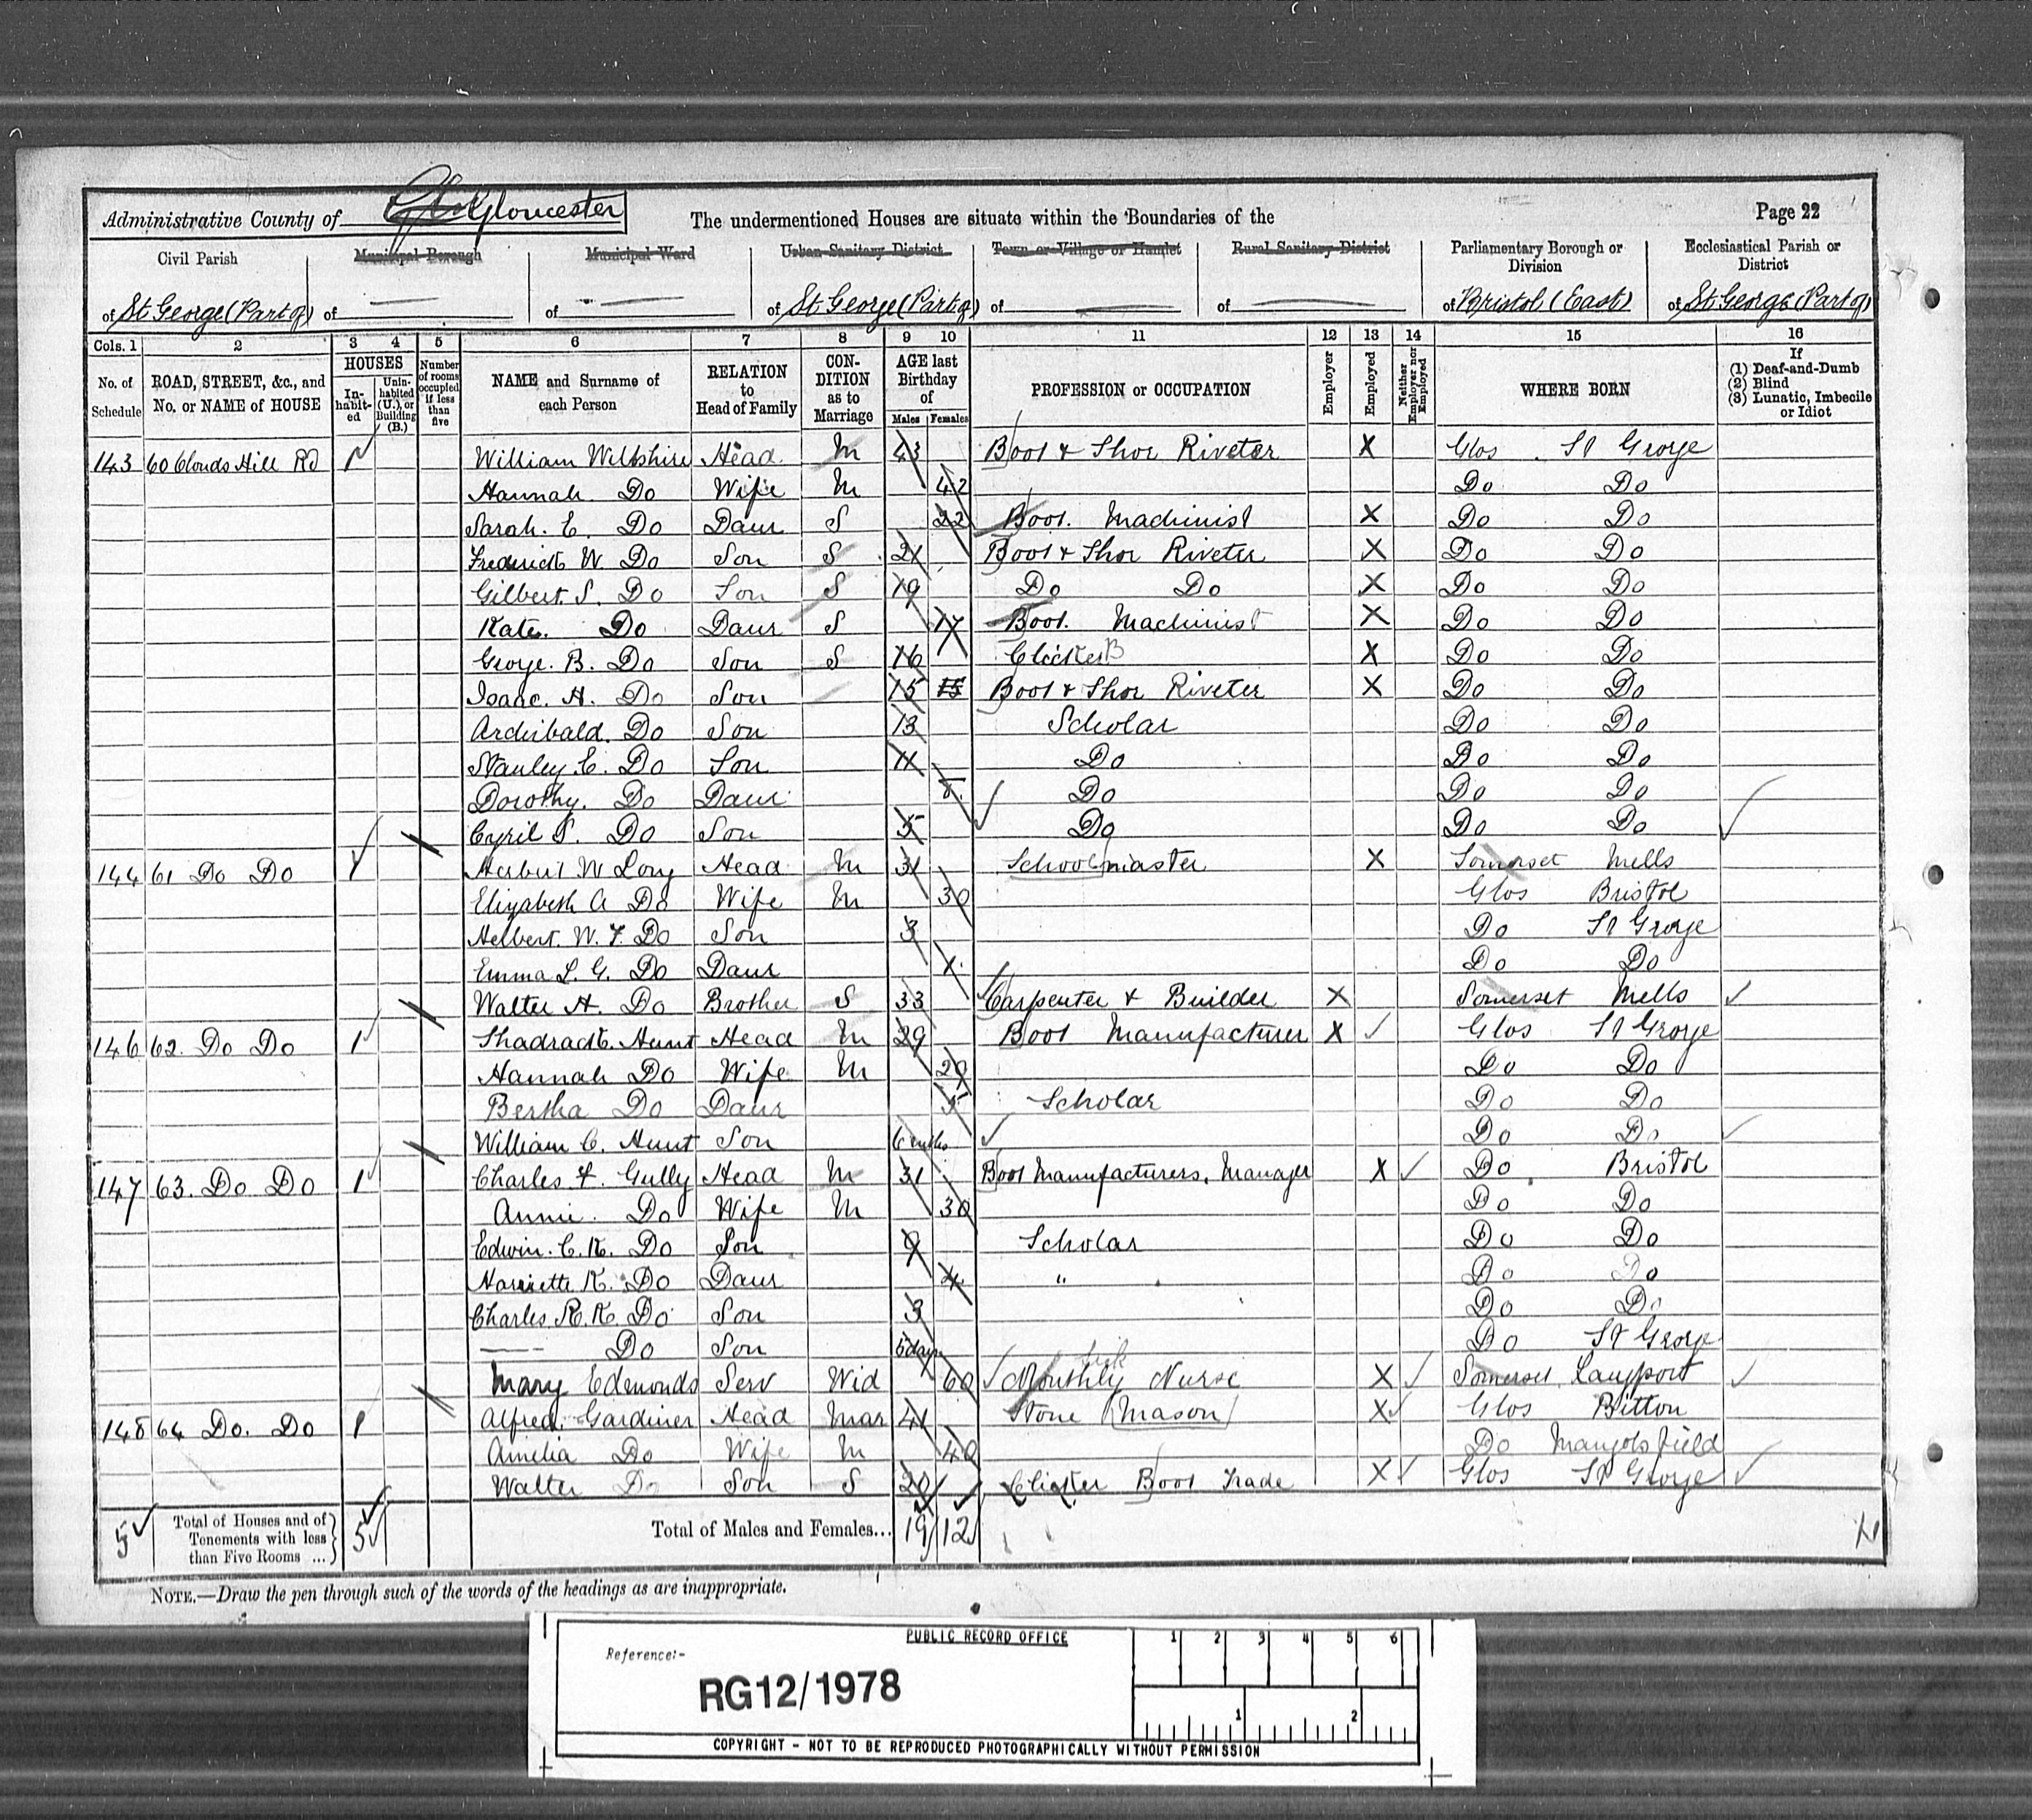 Administrative County of Gloucester The undermentioned Houses are situate within the Boundaries of the Page 22
Civil Parish Municipal Borough Municipal Ward Urban Sanitary District Town or Village or Hamlet Rural Sanitary District Parliamentary Borough or Division Ecclesiastical Parish or District
of St George (Part of) of of of St George (Part of) of of of Bristol (East) of St George (Part of)
Cols. 1 2 3 4 5 6 7 8 9 10 11 12 13 14 15 16
No. of Schedule ROAD, STREET, &c., and No. or NAME of HOUSE HOUSES Inhabited Uninhabited (U.), or Building (B.) Number of rooms occupied if less than five NAME and Surname of each Person RELATION to Head of Family CONDITION as to Marriage AGE last Birthday of Males Females PROFESSION or OCCUPATION Employer Employed Neither Employer nor Employed WHERE BORN If (1) Deaf-and-Dumb (2) Blind (3) Lunatic, Imbecile or Idiot
143 60 Clouds Hill Rd 1 William Wiltshire Head M 43 Boot & Shoe Riveter X Glos St George
Hannah Do Wife M 42 Do Do
Sarah E. Do Daur S 22 Boot Machinist X Do Do
Frederick W. Do Son S 21 Boot & Shoe Riveter X Do Do
Gilbert S. Do Son S 19 Do Do X Do Do
Kate Do Daur S 17 Boot Machinist X Do Do
George B. Do Son S 16 Clicker B X Do Do
Isaac H. Do Son 15 15 Boot & Shoe Riveter X Do Do
Archibald Do Son 13 Scholar Do Do
Stanley E. Do Son 11 Do Do Do
Dorothy Do Daur Do Do Do
Cyril S. Do Son 5 Do Do Do
144 61 Do Do 1 Herbert W Long Head M 31 Schoolmaster X Somerset Mells
Elizabeth A Do Wife M 30 Glos Bristol
Helbert W. F. Do Son 3 Do St George
Emma L. G. Do Daur 1 Do Do
Walter H. Do Brother S 33 Carpenter & Builder X Somerset Mells
146 62. Do Do 1 Shadrack Hunt Head M 29 Boot Manufacturer X Glos St George
Hannah Do Wife M 29 Do Do
Bertha Do Daur 5 Scholar Do Do
William C. Hunt Son 6 mths Do Do
147 63. Do Do 1 Charles F. Gully Head M 31 Boot Manufacturers Manager X Do Bristol
Annie Do Wife M 30 Do Do
Edwin C. K. Do Son 9 Scholar Do Do
Harriette K. Do Daur 4 " Do Do
Charles R. K. Do Son 3 Do Do
—— Do Son 5 days Do St George
Mary Edmonds Serv Wid 60 Monthly Nurse Sick X Somerset Langport
148 64 Do. Do 1 Alfred Gardiner Head Mar 41 Stone Mason X Glos Bitton
Amelia Do Wife M 40 Do Mangotsfield
Walter Do Son S 20 Clicker Boot Trade X Glos St George
5 Total of Houses and of Tenements with less than Five Rooms ... 5 Total of Males and Females... 19 12
NOTE.—Draw the pen through such of the words of the headings as are inappropriate.
PUBLIC RECORD OFFICE 1 2 3 4 5 6
Reference:-
RG12/1978
1 2
COPYRIGHT - NOT TO BE REPRODUCED PHOTOGRAPHICALLY WITHOUT PERMISSION